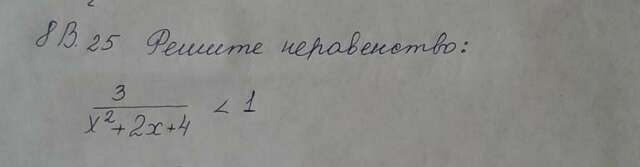 8В.25 Решите неравенство:
3/(x²+2x+4) < 1